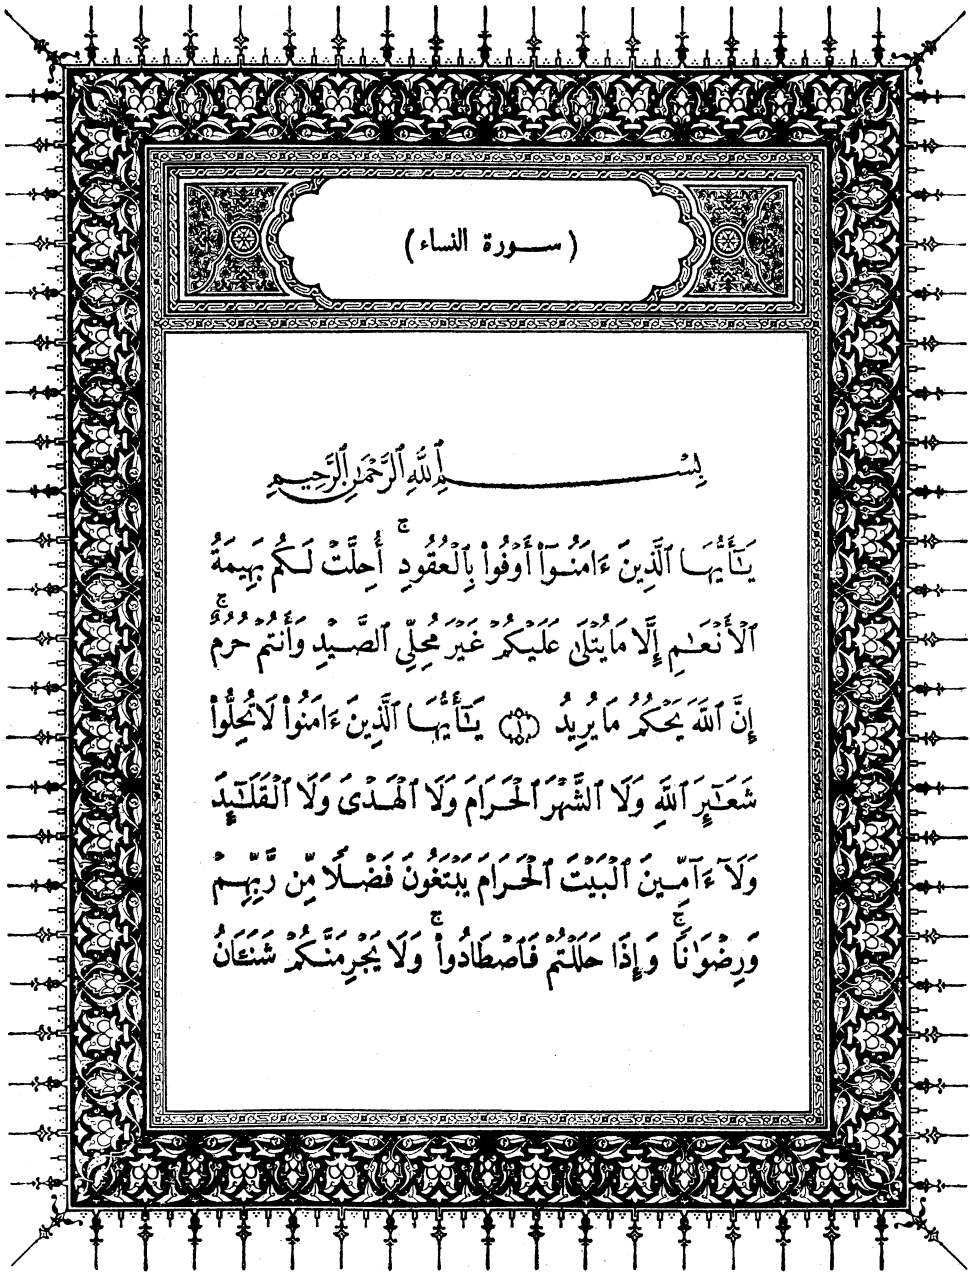 ( سورة النساء )
بِسْمِ ٱللَّهِ ٱلرَّحْمَٰنِ ٱلرَّحِيمِ
يَٰٓأَيُّهَا ٱلَّذِينَ ءَامَنُوٓا۟ أَوْفُوا۟ بِٱلْعُقُودِ ۚ أُحِلَّتْ لَكُم بَهِيمَةُ
ٱلْأَنْعَٰمِ إِلَّا مَا يُتْلَىٰ عَلَيْكُمْ غَيْرَ مُحِلِّى ٱلصَّيْدِ وَأَنتُمْ حُرُمٌ ۗ
إِنَّ ٱللَّهَ يَحْكُمُ مَا يُرِيدُ ۝١ يَٰٓأَيُّهَا ٱلَّذِينَ ءَامَنُوا۟ لَا تُحِلُّوا۟
شَعَٰٓئِرَ ٱللَّهِ وَلَا ٱلشَّهْرَ ٱلْحَرَامَ وَلَا ٱلْهَدْىَ وَلَا ٱلْقَلَٰٓئِدَ
وَلَآ ءَآمِّينَ ٱلْبَيْتَ ٱلْحَرَامَ يَبْتَغُونَ فَضْلًا مِّن رَّبِّهِمْ
وَرِضْوَٰنًا ۚ وَإِذَا حَلَلْتُمْ فَٱصْطَادُوا۟ ۚ وَلَا يَجْرِمَنَّكُمْ شَنَـَٔانُ